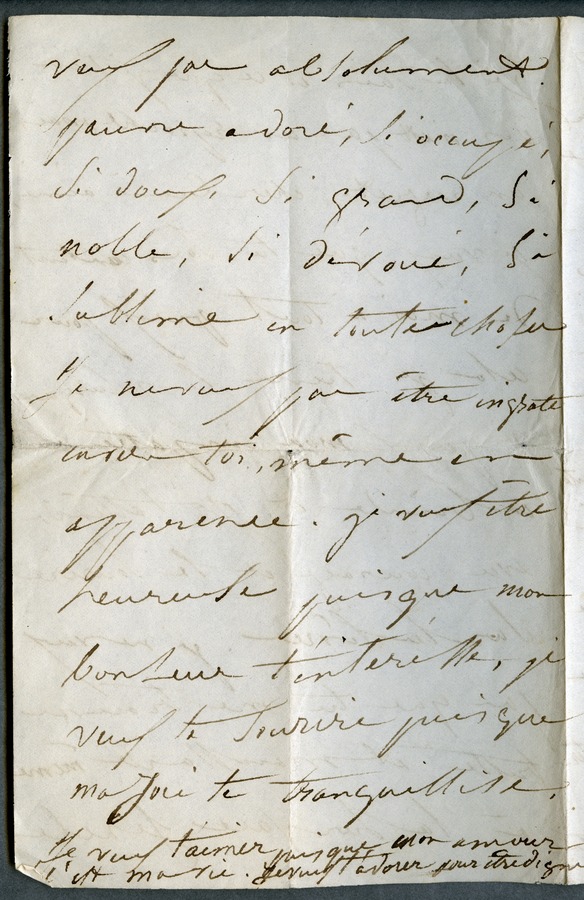 veux pas absolument.
pauvre adoré, si occupé,
si doux, si grand, si
noble, si dévoué, si
sublime en toute chose
Je ne veux pas être ingrate
envers toi, même en
apparence. je veux être
heureuse puisque mon
bonheur t'intéresse, je
veux te sourire puisque
ma joie te tranquillise.
Je veux t'aimer puisque mon amour
c'est ma vie. Je veux t'adorer pour être digne